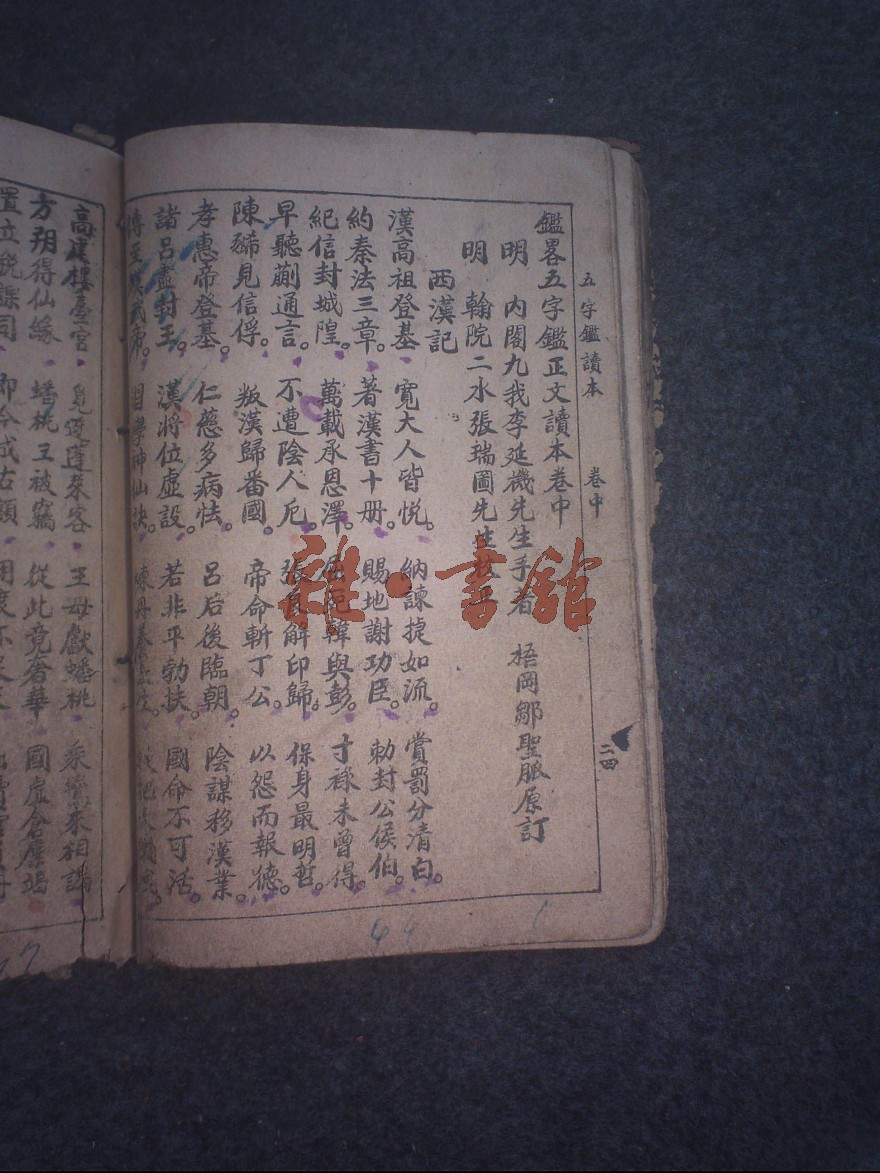 五字鑑讀本 卷中 二四
鑑畧五字鑑正文讀本卷中
明 內閣九我李延機先生手著 梧岡鄒聖脈原訂
明 翰院二水張瑞圖先生校正
西漢記
漢高祖登基 寬大人皆悦。 納諫捷如流。 賞罰分清白。
約秦法三章。 著漢書十册。 賜地謝功臣。 勅封公侯伯。
紀信封城隍。 萬載承恩澤。 韓與彭。 寸祿未曾得。
早聽蒯通言。 不遭陰人厄。 張良解印歸。 保身最明哲。
陳豨見信俘。 叛漢歸番國。 帝命斬丁公。 以怨而報德。
孝惠帝登基。 仁慈多病怯。 呂后後臨朝。 陰謀移漢業。
諸呂盡封王。 漢將位虛設。 若非平勃扶。 國命不可活。
傳至漢武帝。 習學神仙訣。
高建樓臺宮 覓逕蓬萊客 王母獻蟠桃 乘鸞來相謁
方朔得仙緣 蟠桃王被竊 從此竟奢華 國虛倉廩竭
雜·書館